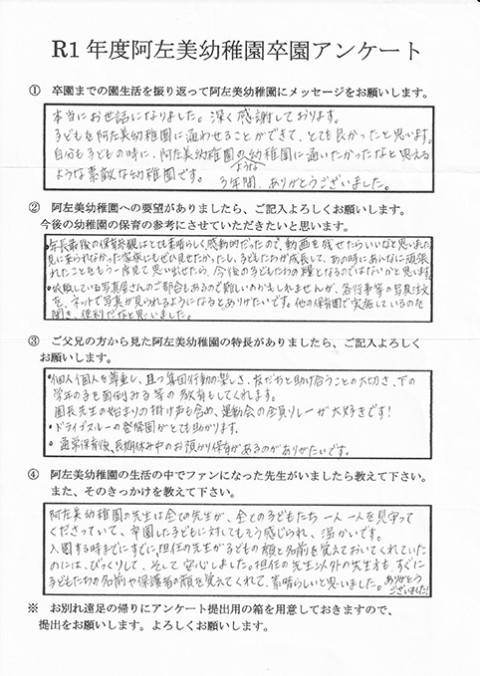 R1年度阿左美幼稚園卒園アンケート
① 卒園までの園生活を振り返って阿左美幼稚園にメッセージをお願いします。
本当にお世話になりました。深く感謝しております。
子どもを阿左美幼稚園に通わせることができて、とても良かったと思います。
自分も子どもの時に、阿左美幼稚園のような幼稚園に通いたかったなと思える
ような素敵な幼稚園です。 3年間、ありがとうございました。
② 阿左美幼稚園への要望がありましたら、ご記入よろしくお願いします。
今後の幼稚園の保育の参考にさせていただきたいと思います。
・年長最後の保育参観はとても素晴らしく感動的だったので、動画を残せたらいいなと思いました。
見に来られなかった家族にもぜひ見せたかったし、子どもたちが成長して、あの時にあんなに頑張
れたことをもう一度見て思い出せたら、今後の子どもたちの糧となるのではないかと思います。
・依頼している写真屋さんのご都合もあるので難しいのかもしれませんが、各行事等の写真注文
を、ネットで写真が見られるようになるとありがたいです。他の保育園で実施しているのを
聞き、便利だなと思いました。
③ ご父兄の方から見た阿左美幼稚園の特長がありましたら、ご記入よろしく
お願いします。
・個人個人を尊重し、且つ集団行動の楽しさ、友だちと助け合うことの大切さ、下の
学年の子を面倒みる等の教育もしてくれます。
園長先生の始まりの掛け声も含め、運動会の全員リレーが大好きです!
・ドライブスルーの登降園がとても助かります。
・通常保育後、長期休み中のお預かり保育があるのがありがたいです。
④ 阿左美幼稚園の生活の中でファンになった先生がいましたら教えて下さい。
また、そのきっかけを教えて下さい。
阿左美幼稚園の先生は全ての先生が、全ての子どもたち一人一人を見守って
くださっていて、卒園した子どもに対してもそう感じられ、温かいです。
入園する時までにすでに担任の先生が子どもの顔と名前を覚えておいてくれていた
のには、びっくりして、そして安心しました。担任の先生以外の先生方も、すぐに
子どもたちの名前や保護者の顔を覚えてくれて、素晴らしいと思いました。ありがとう
ございました!
※ お別れ遠足の帰りにアンケート提出用の箱を用意しておきますので、
提出をお願いします。よろしくお願いします。